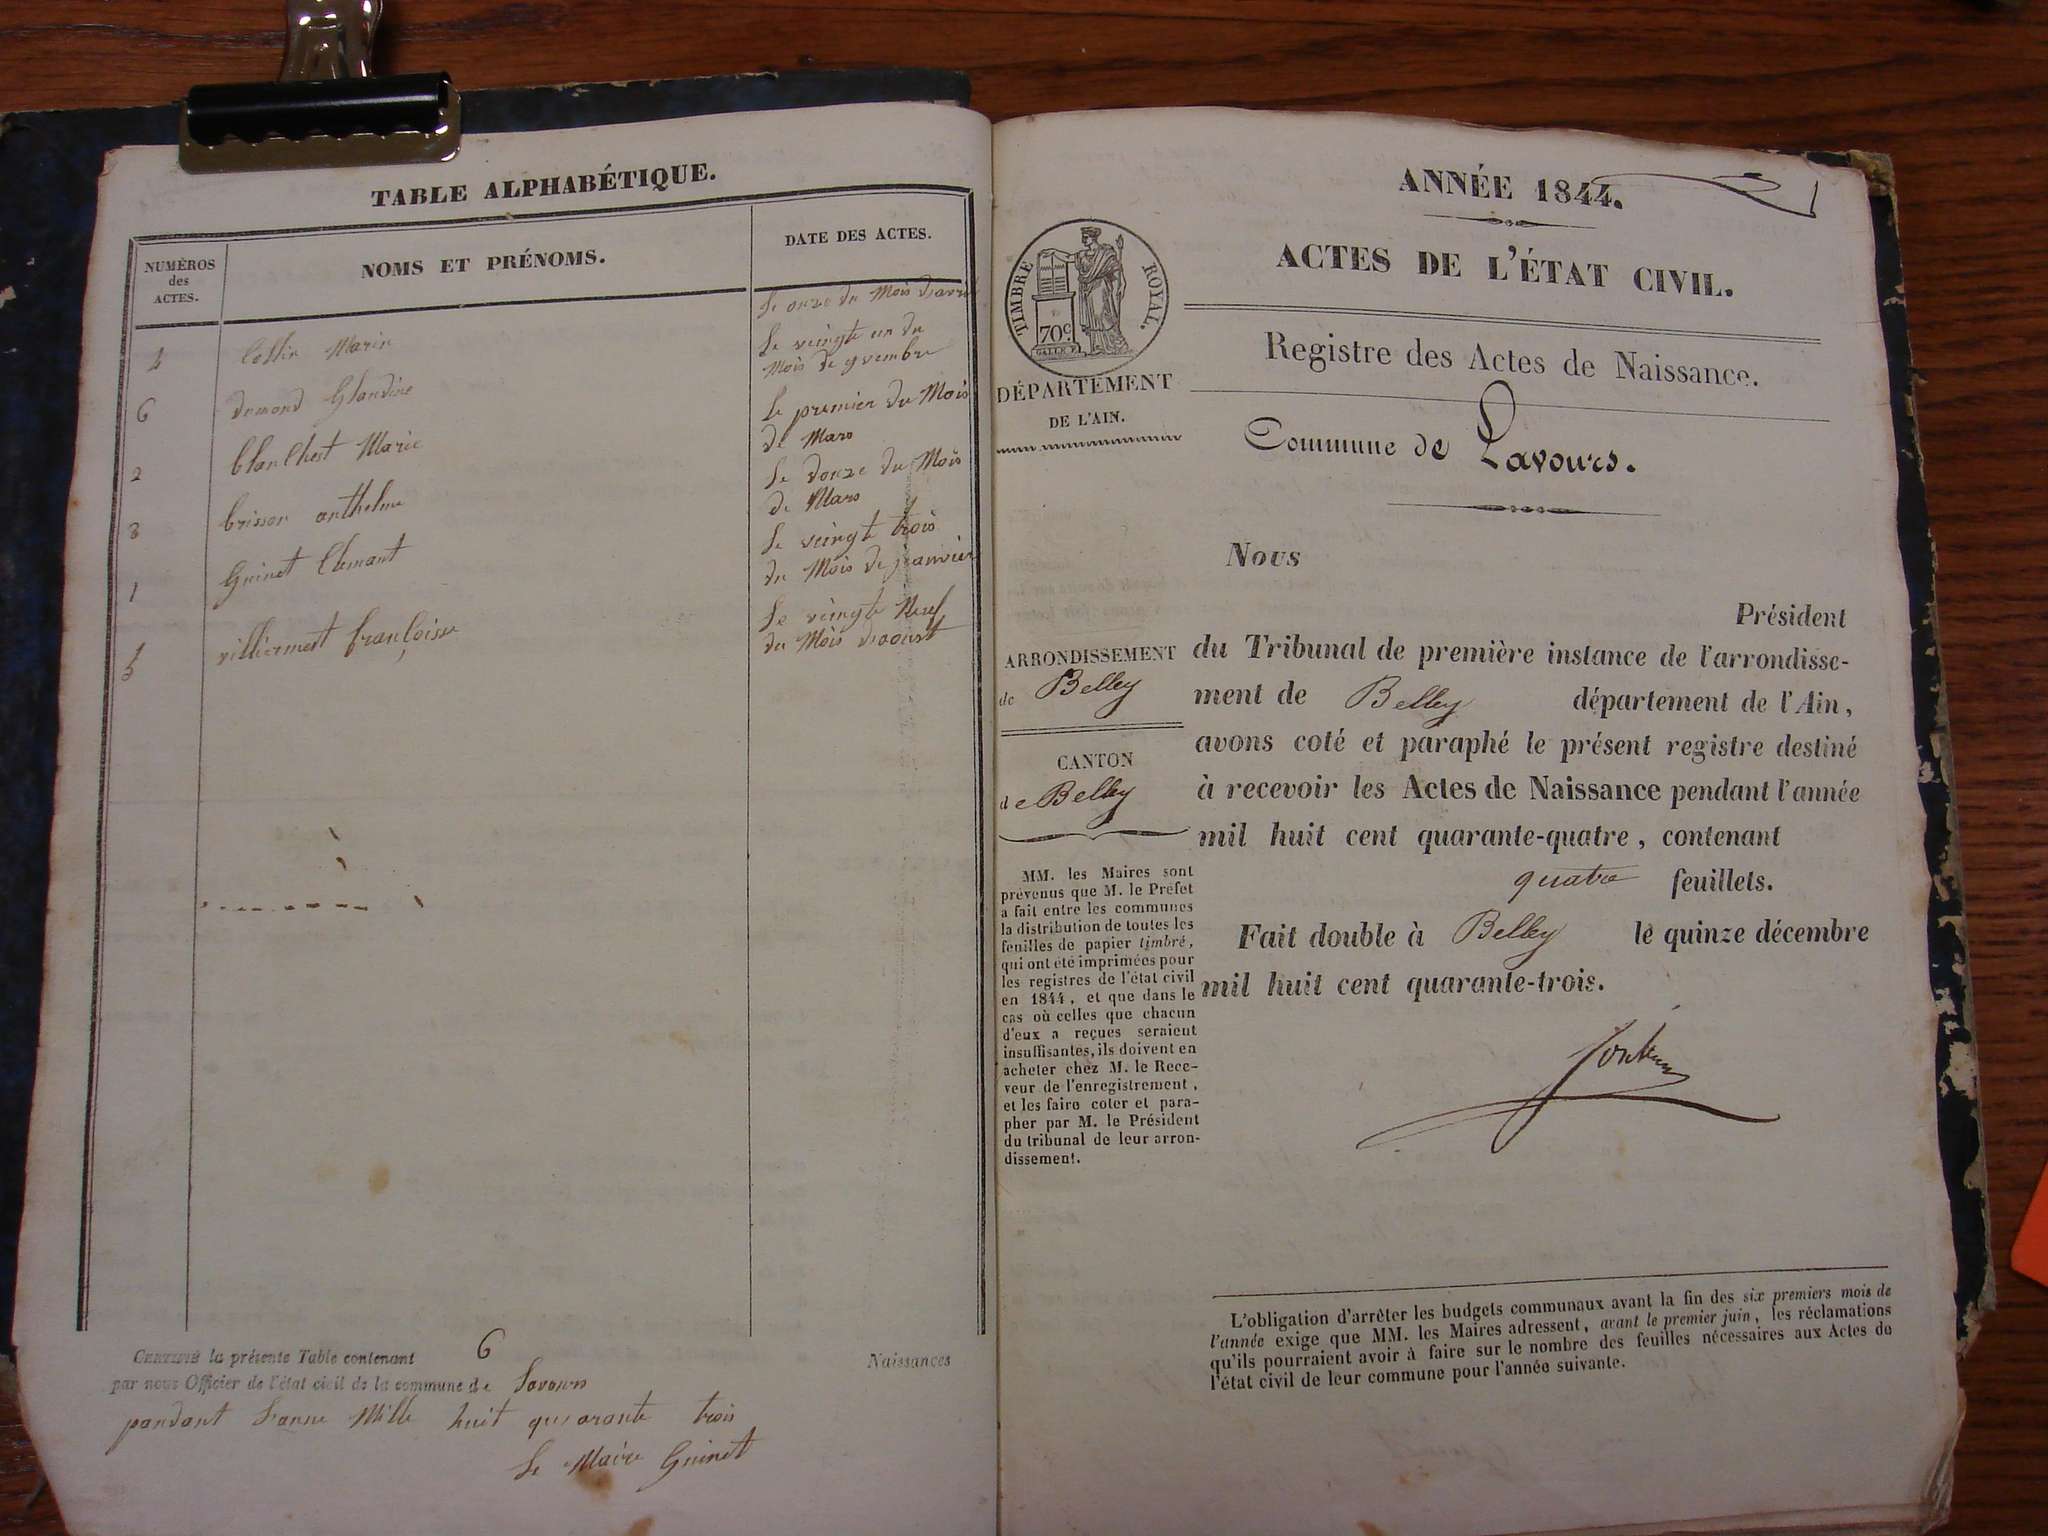 TABLE ALPHABÉTIQUE.
NUMÉROS
des
ACTES.
NOMS ET PRÉNOMS.
DATE DES ACTES.
le onze du Mois d'avril
4 Collin Marie
le veingte un du
Mois de 9vembre
6 dumond Glandine
le premier du Mois
de Mars
2 blanchet Marie
le douze du Mois
de Mars
3 brisson anthelme
le veingte trois
du Mois de janvier
1 Guinet Clemant
le veingte Neuf
du Mois d'aoust
5 villiermest françoise
CERTIFIÉ la présente Table contenant 6 Naissances
par nous Officier de l'état civil de la commune de Lavours
pandant l'anne Mille huit quarante trois
le Maire Guinet
ANNÉE 1844.
1
ACTES DE L'ÉTAT CIVIL.
TIMBRE ROYAL.
70c.
Registre des Actes de Naissance.
DÉPARTEMENT
DE L'AIN.
Commune de Lavours.
Nous
Président
du Tribunal de première instance de l'arrondisse-
ment de Belley département de l'Ain,
avons coté et paraphé le présent registre destiné
à recevoir les Actes de Naissance pendant l'année
mil huit cent quarante-quatre, contenant
quatre feuillets.
Fait double à Belley le quinze décembre
mil huit cent quarante-trois.
ARRONDISSEMENT
de Belley
CANTON
de Belley
MM. les Maires sont
prévenus que M. le Préfet
a fait entre les communes
la distribution de toutes les
feuilles de papier timbré,
qui ont été imprimées pour
les registres de l'état civil
en 1844, et que dans le
cas où celles que chacun
d'eux a reçues seraient
insuffisantes, ils doivent en
acheter chez M. le Rece-
veur de l'enregistrement,
et les faire coter et para-
pher par M. le Président
du tribunal de leur arron-
dissement.
L'obligation d'arrêter les budgets communaux avant la fin des six premiers mois de
l'année exige que MM. les Maires adressent, avant le premier juin, les réclamations
qu'ils pourraient avoir à faire sur le nombre des feuilles nécessaires aux Actes de
l'état civil de leur commune pour l'année suivante.